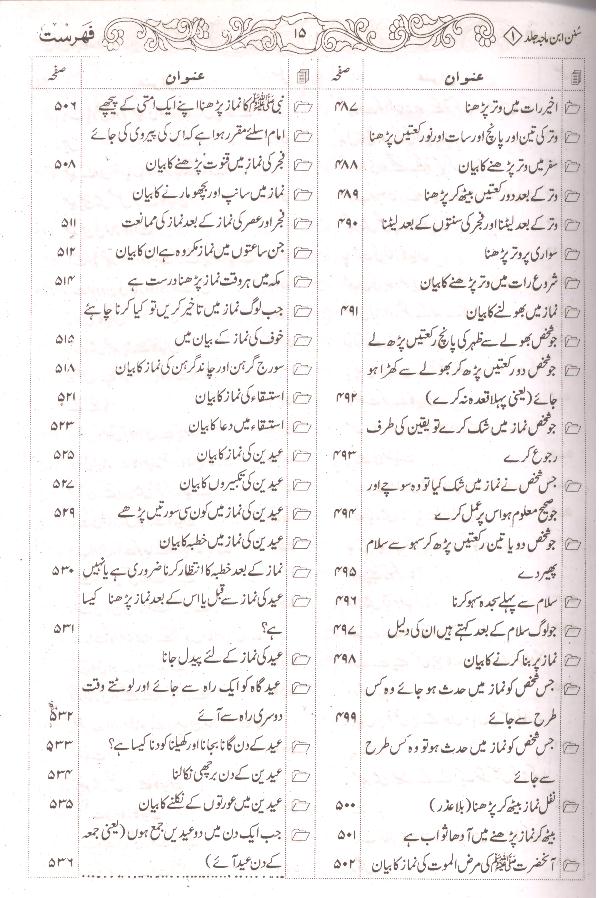 سُنن ابن ماجہ جلد ۱
۱۵
فہرست
عنوان صفحہ
اخیر رات میں وتر پڑھنا ۴۸۷
وتر کی تین اور پانچ اور سات اور نو رکعتیں پڑھنا
سفر میں وتر پڑھنے کا بیان ۴۸۸
وتر کے بعد دو رکعتیں بیٹھ کر پڑھنا ۴۸۹
وتر کے بعد لیٹنا اور فجر کی سنتوں کے بعد لیٹنا ۴۹۰
سواری پر وتر پڑھنا
شروع رات میں وتر پڑھنے کا بیان
نماز میں بھولنے کا بیان ۴۹۱
جو شخص بھولے سے ظہر کی پانچ رکعتیں پڑھ لے
جو شخص دو رکعتیں پڑھ کر بھولے سے کھڑا ہو
جائے (یعنی پہلا قعدہ نہ کرے) ۴۹۲
جو شخص نماز میں شک کرے تو یقین کی طرف
رجوع کرے ۴۹۳
جس شخص نے نماز میں شک کیا تو وہ سوچے اور
جو صحیح معلوم ہو اس پر عمل کرے ۴۹۴
جو شخص دو یا تین رکعتیں پڑھ کر سہو سے سلام
پھیر دے ۴۹۵
سلام سے پہلے سجدہ سہو کرنا ۴۹۶
جو لوگ سلام کے بعد کہتے ہیں ان کی دلیل ۴۹۷
نماز پر بنا کرنے کا بیان ۴۹۸
جس شخص کو نماز میں حدث ہو جائے وہ کس
طرح سے جائے ۴۹۹
جس شخص کو نماز میں حدث ہو تو وہ کس طرح
سے جائے
نفل نماز بیٹھ کر پڑھنا (بلا عذر) ۵۰۰
بیٹھ کر نماز پڑھنے میں آدھا ثواب ہے ۵۰۱
آنحضرت ﷺ کی مرض الموت کی نماز کا بیان ۵۰۲
عنوان صفحہ
نبی ﷺ کا نماز پڑھنا اپنے ایک امتی کے پیچھے ۵۰۶
امام اسلئے مقرر ہوا ہے کہ اس کی پیروی کی جائے
فجر کی نماز میں قنوت پڑھنے کا بیان ۵۰۸
نماز میں سانپ اور بچھو مارنے کا بیان
فجر اور عصر کی نماز کے بعد نماز کی ممانعت ۵۱۱
جن ساعتوں میں نماز مکروہ ہے ان کا بیان ۵۱۲
مکہ میں ہر وقت نماز پڑھنا درست ہے ۵۱۴
جب لوگ نماز میں تاخیر کریں تو کیا کرنا چاہئے
خوف کی نماز کے بیان میں ۵۱۵
سورج گرہن اور چاند گرہن کی نماز کا بیان ۵۱۸
استسقاء کی نماز کا بیان ۵۲۱
استسقاء میں دعا کا بیان ۵۲۳
عیدین کی نماز کا بیان ۵۲۵
عیدین کی تکبیروں کا بیان ۵۲۷
عیدین کی نماز میں کون سی سورتیں پڑھے ۵۲۹
عیدین کی نماز میں خطبہ کا بیان
نماز کے بعد خطبہ کا انتظار کرنا ضروری ہے یا نہیں ۵۳۰
عید کی نماز سے قبل یا اس کے بعد نماز پڑھنا کیسا
ہے؟ ۵۳۱
عید کی نماز کے لئے پیدل جانا
عید گاہ کو ایک راہ سے جائے اور لوٹتے وقت
دوسری راہ سے آئے ۵۳۲
عید کے دن گانا بجانا اور کھیلنا کودنا کیسا ہے؟ ۵۳۳
عیدین کے دن برچھی نکالنا ۵۳۴
عیدین میں عورتوں کے نکلنے کا بیان ۵۳۵
جب ایک دن میں دو عیدیں جمع ہوں (یعنی جمعہ
کے دن عید آئے) ۵۳۶